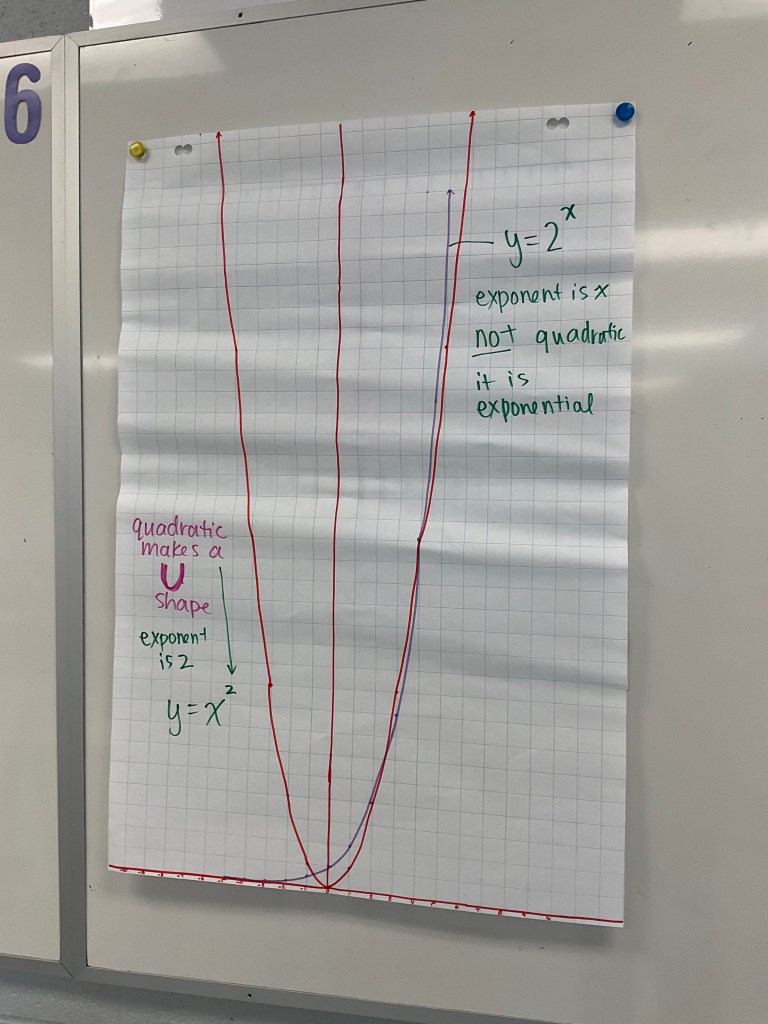 6
y=2ˣ
exponent is x
not quadratic
it is
exponential
quadratic
makes a
U
shape
exponent
is 2
y=x²